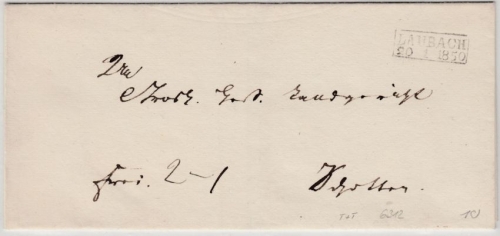 LAUBACH
20 1 1850
An
Grosh. Hess. Landgericht
frei. 2-1
Schotten.
6212
10